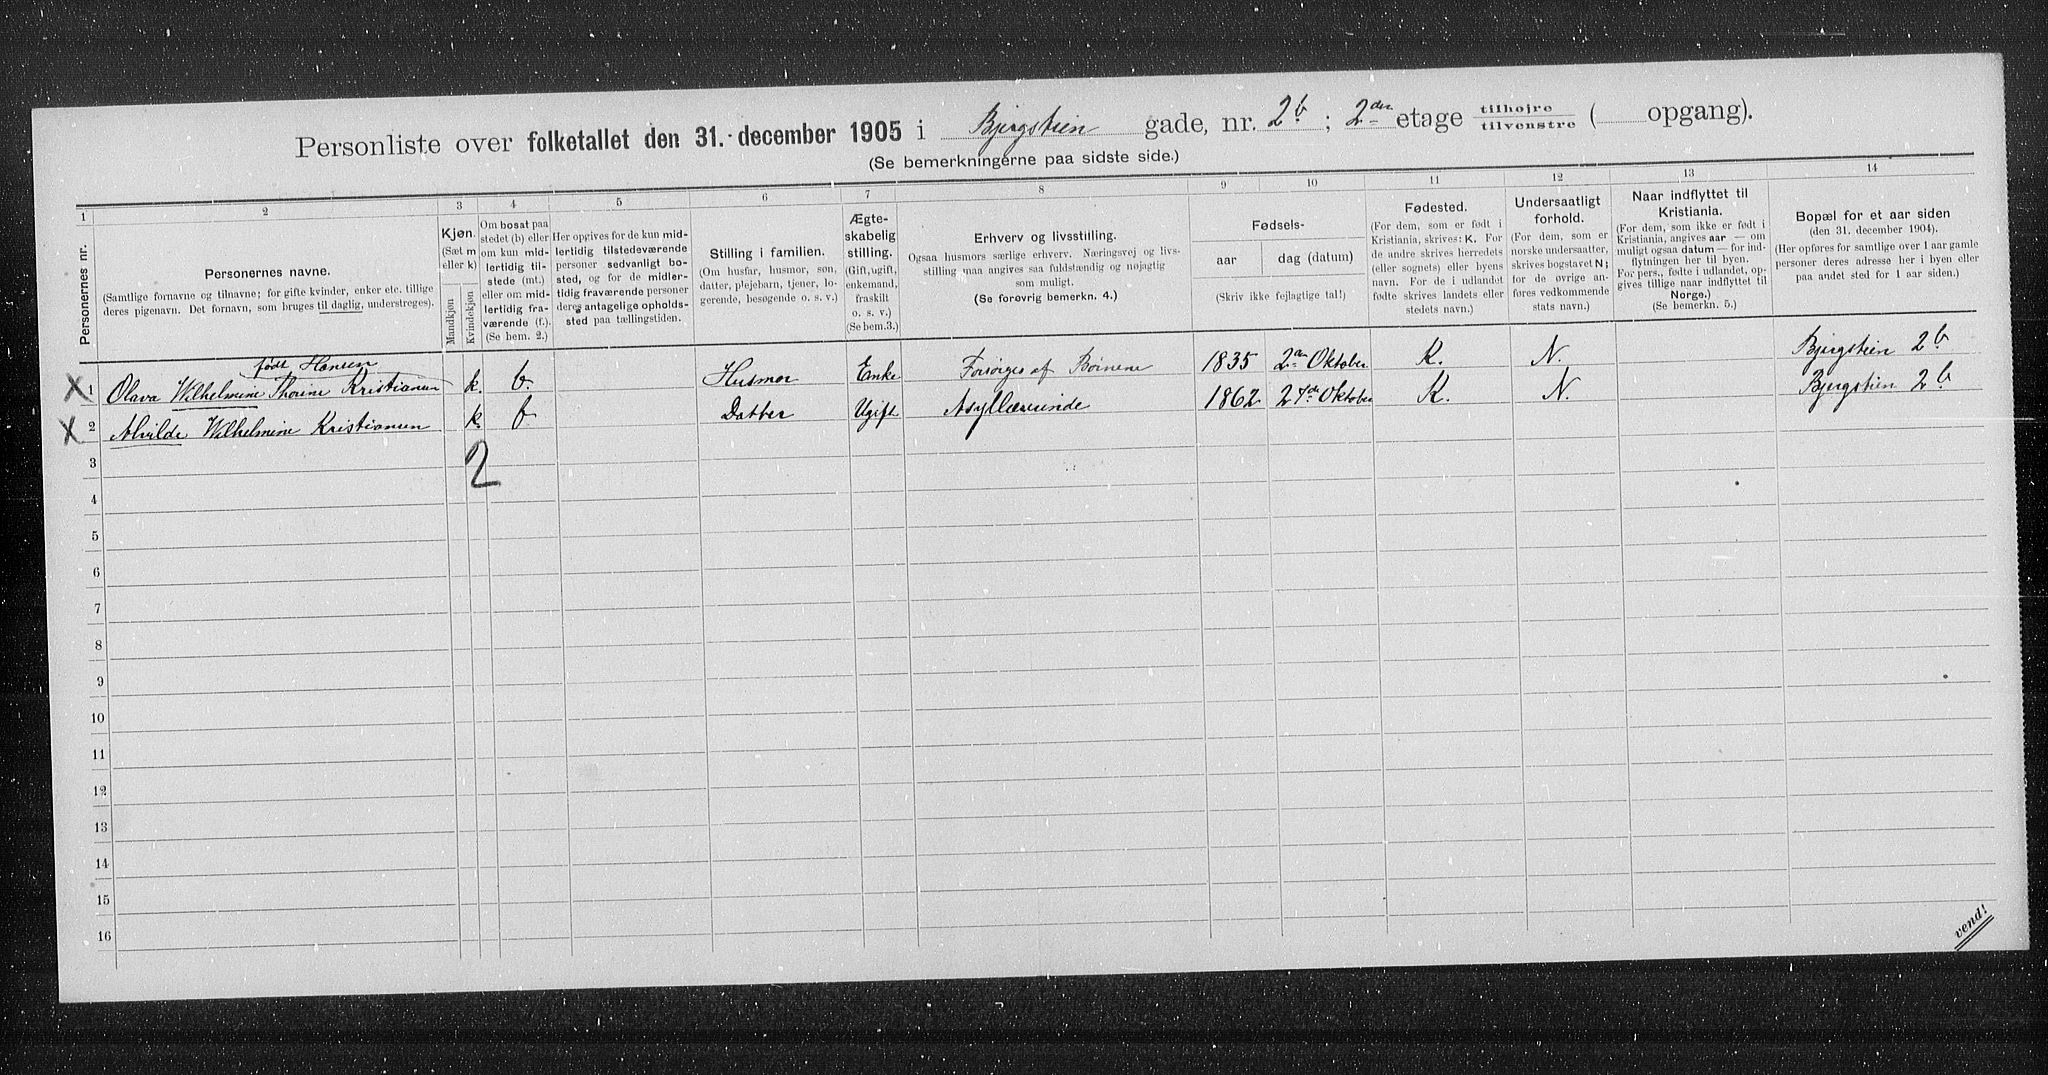 Personliste over folketallet den 31. december 1905 i Bjergstien gade, nr. 2b; 2den etage tilhøjre / tilvenstre ( opgang).
(Se bemerkningerne paa sidste side.)
1 2 3 4 5 6 7 8 9 10 11 12 13 14
Personernes nr.
Personernes navne.
(Samtlige fornavne og tilnavne; for gifte kvinder, enker etc. tillige
deres pigenavn. Det fornavn, som bruges til daglig, understreges).
Kjøn.
(Sæt m
eller k)
Mandkjøn
Kvindekjøn
Om bosat paa
stedet (b) eller
om kun mid-
lertidig til-
stede (mt.)
eller om mid-
lertidig fra-
værende (f.).
(Se bem. 2.)
Her opgives for de kun mid-
lertidig tilstedeværende
personer sedvanlig bo-
sted, og for de midler-
tidig fraværende personer
deres antagelige opholds-
sted paa tællingstiden.
Stilling i familien.
(Om husfar, husmor, søn,
datter, plejebarn, tjener, lo-
gerende, besøgende o. s. v.)
Ægte-
skabelig
stilling.
(Gift, ugift,
enkemand,
fraskilt
o. s. v.)
(Se bem.3.)
Erhverv og livsstilling.
Ogsaa husmors særlige erhverv. Næringsvej og livs-
stilling maa angives saa fuldstændig og nøjagtig
som muligt.
(Se forøvrig bemerkn. 4.)
Fødsels-
aar
dag (datum)
(Skriv ikke fejlagtige tal!)
Fødested.
(For dem, som er født i
Kristiania, skrives: K. For
de andre skrives herredets
(eller sognets) eller byens
navn. For de i udlandet
fødte skrives landets eller
stedets navn.)
Undersaatligt
forhold.
(For dem, som er
norske undersaatter,
skrives bogstavet N;
for de øvrige an-
føres vedkommende
stats navn.)
Naar indflyttet til
Kristiania.
(For dem, som ikke er født i
Kristiania, angives aar — om
muligt ogsaa datum — for ind-
flytningen her til byen.
For pers., fødte i udlandet, op-
gives tillige naar indflyttet til
Norge.)
(Se bemerkn. 5.)
Bopæl for et aar siden
(den 31. december 1904).
(Her opføres for samtlige over 1 aar gamle
personer deres adresse her i byen eller
paa andet sted for 1 aar siden.)
født Hansen
X 1 Olava Wilhelmine Thorine Kristiansen k. b. Husmor Enke Forsørges af Børnene 1835 2den Oktober K. N. Bjergstien 2b
X 2 Alvilde Wilhelmine Kristiansen k. b Datter Ugift Asyllærerinde 1862 27de Oktober K. N. Bjergstien 2b
3
2
4
5
6
7
8
9
10
11
12
13
14
15
16
vend!